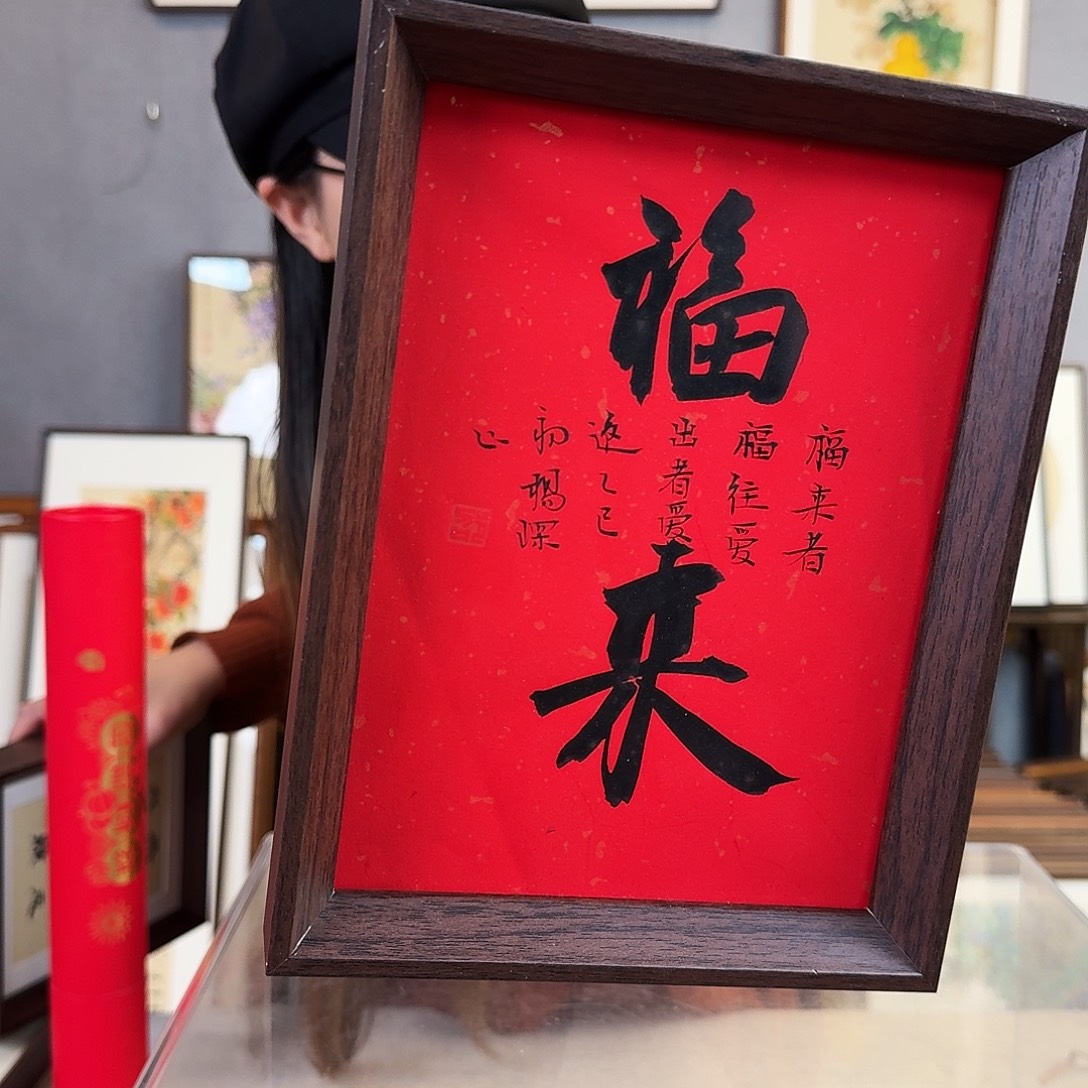 福来
福来者
福往爱
出者爱
返乙巳
初楊深